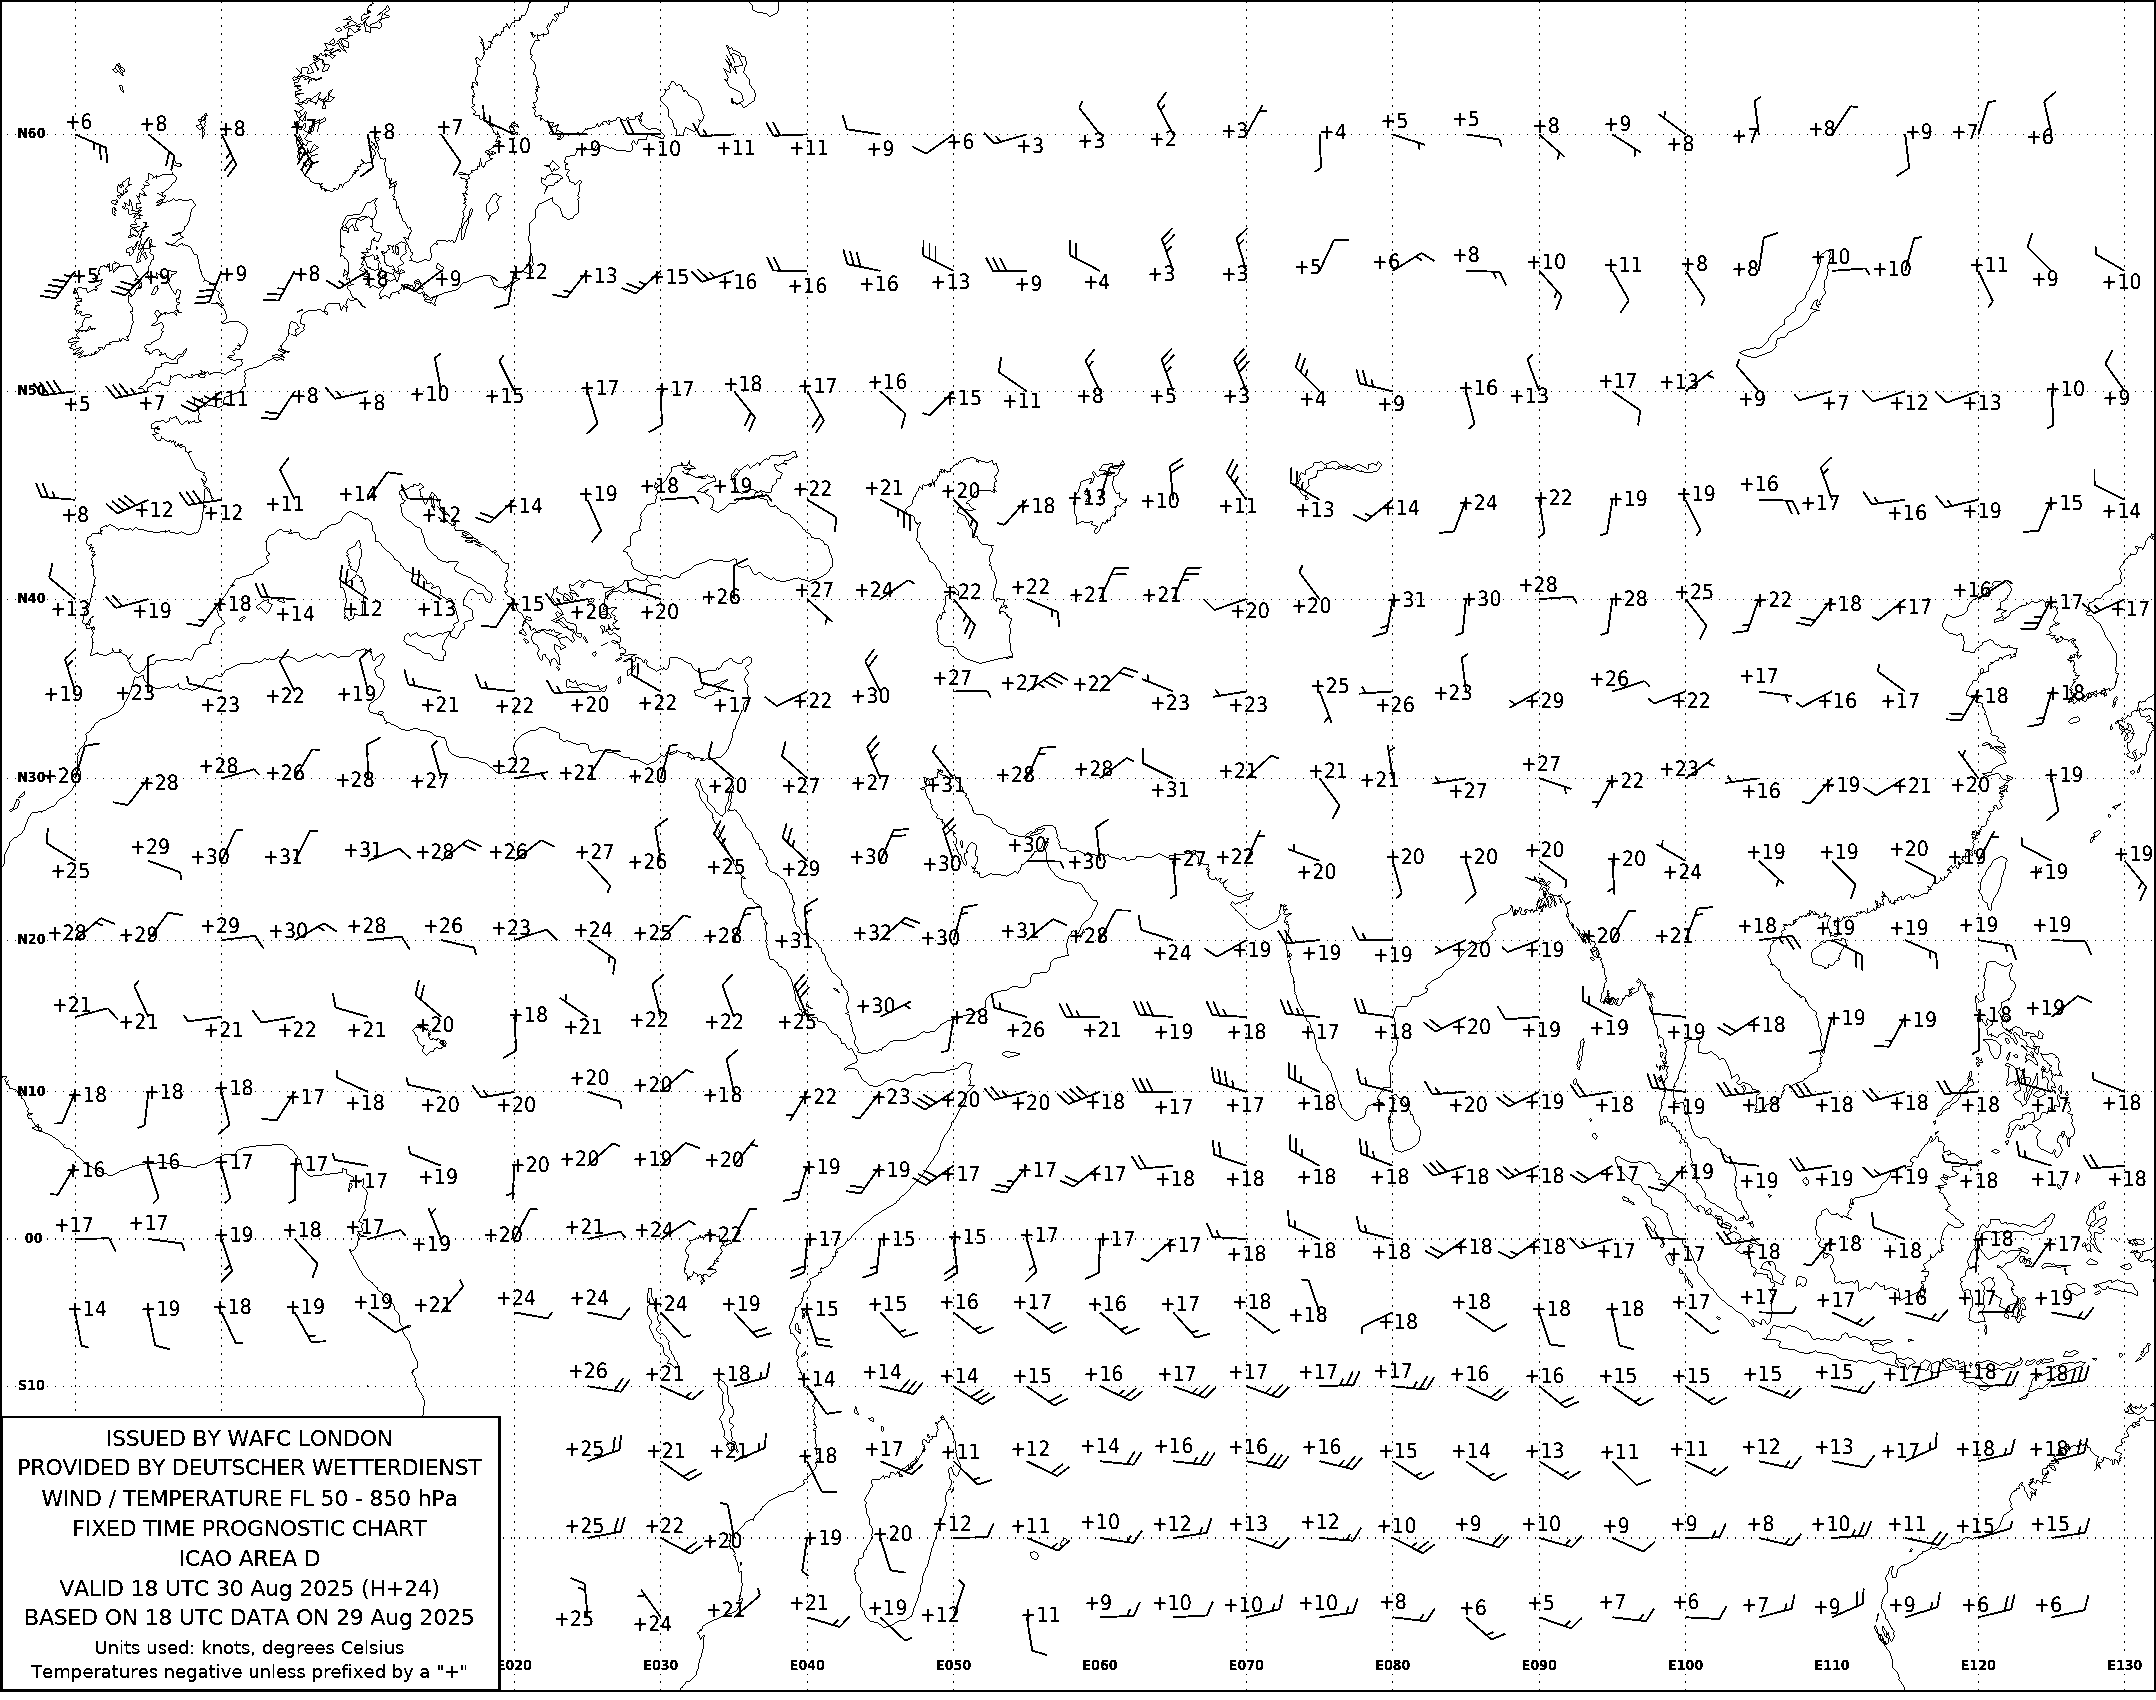 N60 +6 +8 +8 +8 +7 +10 +9 +10 +11 +11 +9 +6 +3 +3 +2 +3 +4 +5 +5 +8 +9 +8 +7 +8 +9 +7 +6
+5 +9 +9 +8 +8 +9 +12 +13 +15 +16 +16 +16 +13 +9 +4 +3 +3 +5 +6 +8 +10 +11 +8 +8 +10 +10 +11 +9 +10
N50 +5 +7 +11 +8 +8 +10 +15 +17 +17 +18 +17 +16 +15 +11 +8 +5 +3 +4 +9 +16 +13 +17 +13 +9 +7 +12 +13 +10 +9
+8 +12 +12 +11 +14 +12 +14 +19 +18 +19 +22 +21 +20 +18 +13 +10 +11 +13 +14 +24 +22 +19 +19 +16 +17 +16 +19 +15 +14
N40 +13 +19 +18 +14 +12 +13 +15 +20 +20 +26 +27 +24 +22 +22 +21 +21 +20 +20 +31 +30 +28 +28 +25 +22 +18 +17 +16 +17 +17
+19 +23 +23 +22 +19 +21 +22 +20 +22 +17 +22 +30 +27 +27 +22 +23 +23 +25 +26 +23 +29 +26 +22 +17 +16 +17 +18 +18
N30 +26 +28 +28 +26 +28 +27 +22 +21 +20 +20 +27 +27 +31 +28 +28 +31 +21 +21 +21 +27 +27 +22 +23 +16 +19 +21 +20 +19
+25 +29 +30 +31 +31 +28 +26 +27 +26 +25 +29 +30 +30 +30 +30 +27 +22 +20 +20 +20 +20 +20 +24 +19 +19 +20 +19 +19 +19
N20 +28 +29 +29 +30 +28 +26 +23 +24 +25 +28 +31 +32 +30 +31 +28 +24 +19 +19 +19 +20 +19 +20 +21 +18 +19 +19 +19 +19
+21 +21 +21 +22 +21 +20 +18 +21 +22 +22 +25 +30 +28 +26 +21 +19 +18 +17 +18 +20 +19 +19 +19 +18 +19 +19 +18 +19
N10 +18 +18 +18 +17 +18 +20 +20 +20 +20 +18 +22 +23 +20 +20 +18 +17 +17 +18 +19 +20 +19 +18 +19 +18 +18 +18 +18 +17 +18
+16 +16 +17 +17 +17 +19 +20 +20 +19 +20 +19 +19 +17 +17 +17 +18 +18 +18 +18 +18 +18 +17 +19 +19 +19 +19 +18 +17 +18
00 +17 +17 +19 +18 +17 +19 +20 +21 +24 +22 +17 +15 +15 +17 +17 +17 +18 +18 +18 +18 +18 +17 +17 +18 +18 +18 +18 +17
+14 +19 +18 +19 +19 +21 +24 +24 +24 +19 +15 +15 +16 +17 +16 +17 +18 +18 +18 +18 +18 +18 +17 +17 +17 +16 +17 +19
S10 +26 +21 +18 +14 +14 +14 +15 +16 +17 +17 +17 +17 +16 +16 +15 +15 +15 +15 +17 +18 +18
+25 +21 +21 +18 +17 +11 +12 +14 +16 +16 +16 +15 +14 +13 +11 +11 +12 +13 +17 +18 +18
+25 +22 +20 +19 +20 +12 +11 +10 +12 +13 +12 +10 +9 +10 +9 +9 +8 +10 +11 +15 +15
+25 +24 +22 +21 +19 +12 +11 +9 +10 +10 +10 +8 +6 +5 +7 +6 +7 +9 +9 +6 +6
E020 E030 E040 E050 E060 E070 E080 E090 E100 E110 E120 E130
ISSUED BY WAFC LONDON
PROVIDED BY DEUTSCHER WETTERDIENST
WIND / TEMPERATURE FL 50 - 850 hPa
FIXED TIME PROGNOSTIC CHART
ICAO AREA D
VALID 18 UTC 30 Aug 2025 (H+24)
BASED ON 18 UTC DATA ON 29 Aug 2025
Units used: knots, degrees Celsius
Temperatures negative unless prefixed by a "+"